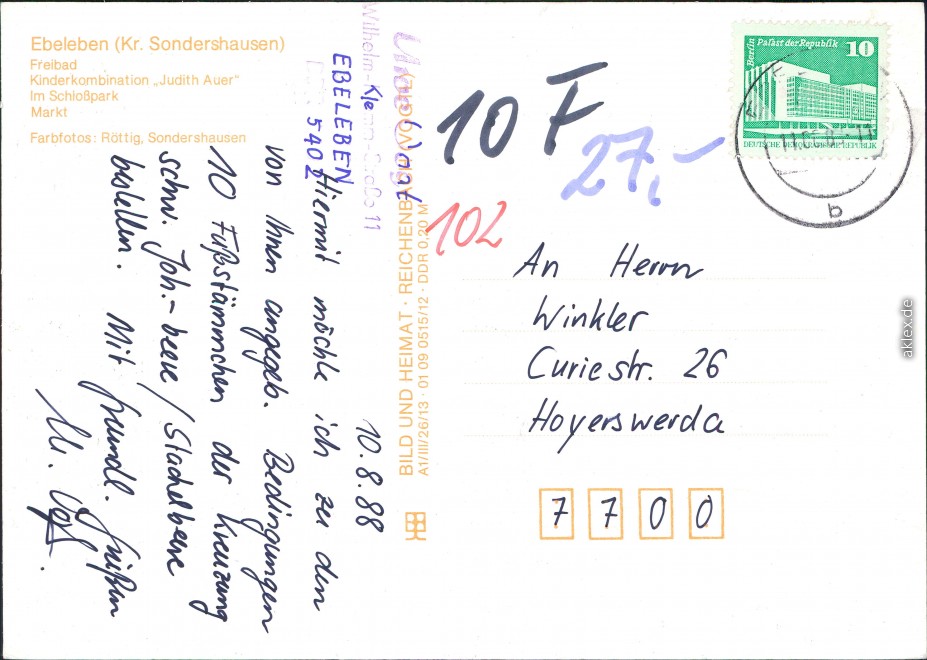 Ebeleben (Kr. Sondershausen)
Freibad
Kinderkombination „Judith Auer“
Im Schloßpark
Markt
Farbfotos: Röttig, Sondershausen
Wilhelm-Klemm-Straße 11
EBELEBEN
5402
10.8.88
Hiermit möchte ich zu den
von Ihnen angegeb. Bedingungen
10 Fußstämmchen der Kreuzung
schw. Joh.-beere / Stachelbeere
bestellen. Mit freundl. Grüßen
U. Vogt.
BILD UND HEIMAT · REICHENBACH (VOGTL)
A1/III/26/13 · 01 09 0515/12 · DDR 0,20 M
10 F
27,-
102
Berlin Palast der Republik 10
DEUTSCHE DEMOKRATISCHE REPUBLIK
b
An Herrn
Winkler
Curiestr. 26
Hoyerswerda
7 7 0 0
aklex.de